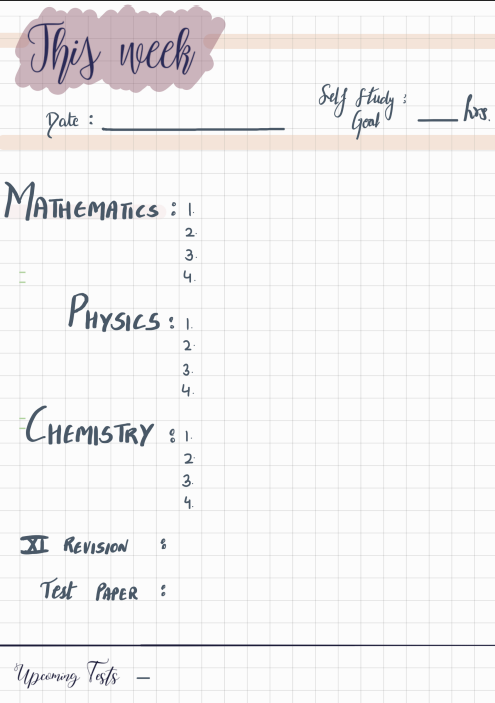 This week
Self Study :
Date : ________ Goal ____ hrs.
MATHEMATICS : 1.
2.
3.
4.
PHYSICS : 1.
2.
3.
4.
CHEMISTRY : 1.
2.
3.
4.
XI REVISION :
Test PAPER :
Upcoming Tests —